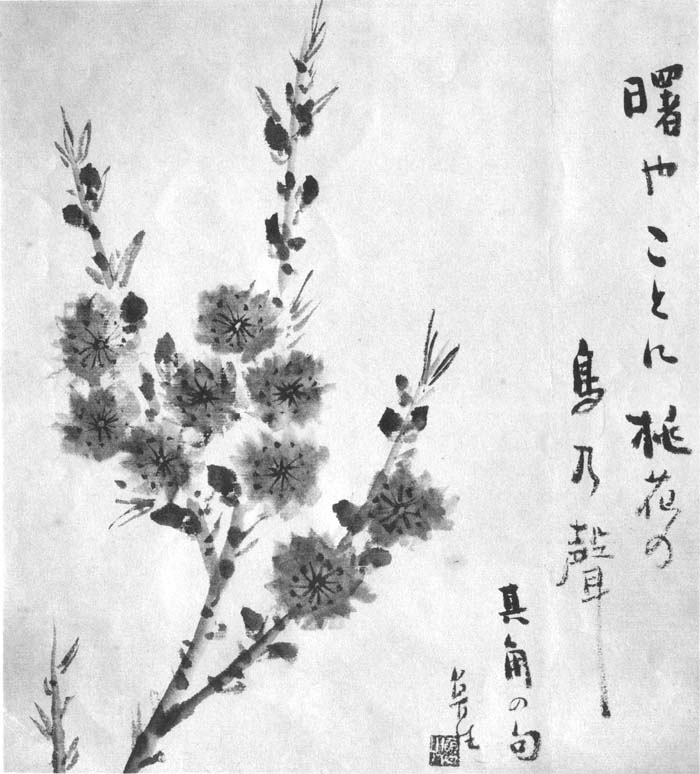 曙やことに桃花の
鳥乃聲
其角の句